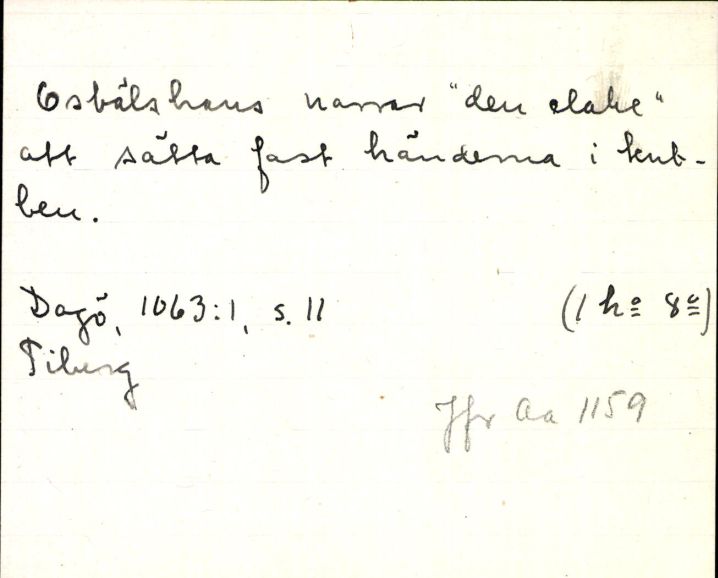 Osbålshans narrar "den elake"
att sätta fast händerna i kub-
ben.
Dagö, 1063:1, s. 11 (1 hº 8º)
Tiberg
Jfr Aa 1159